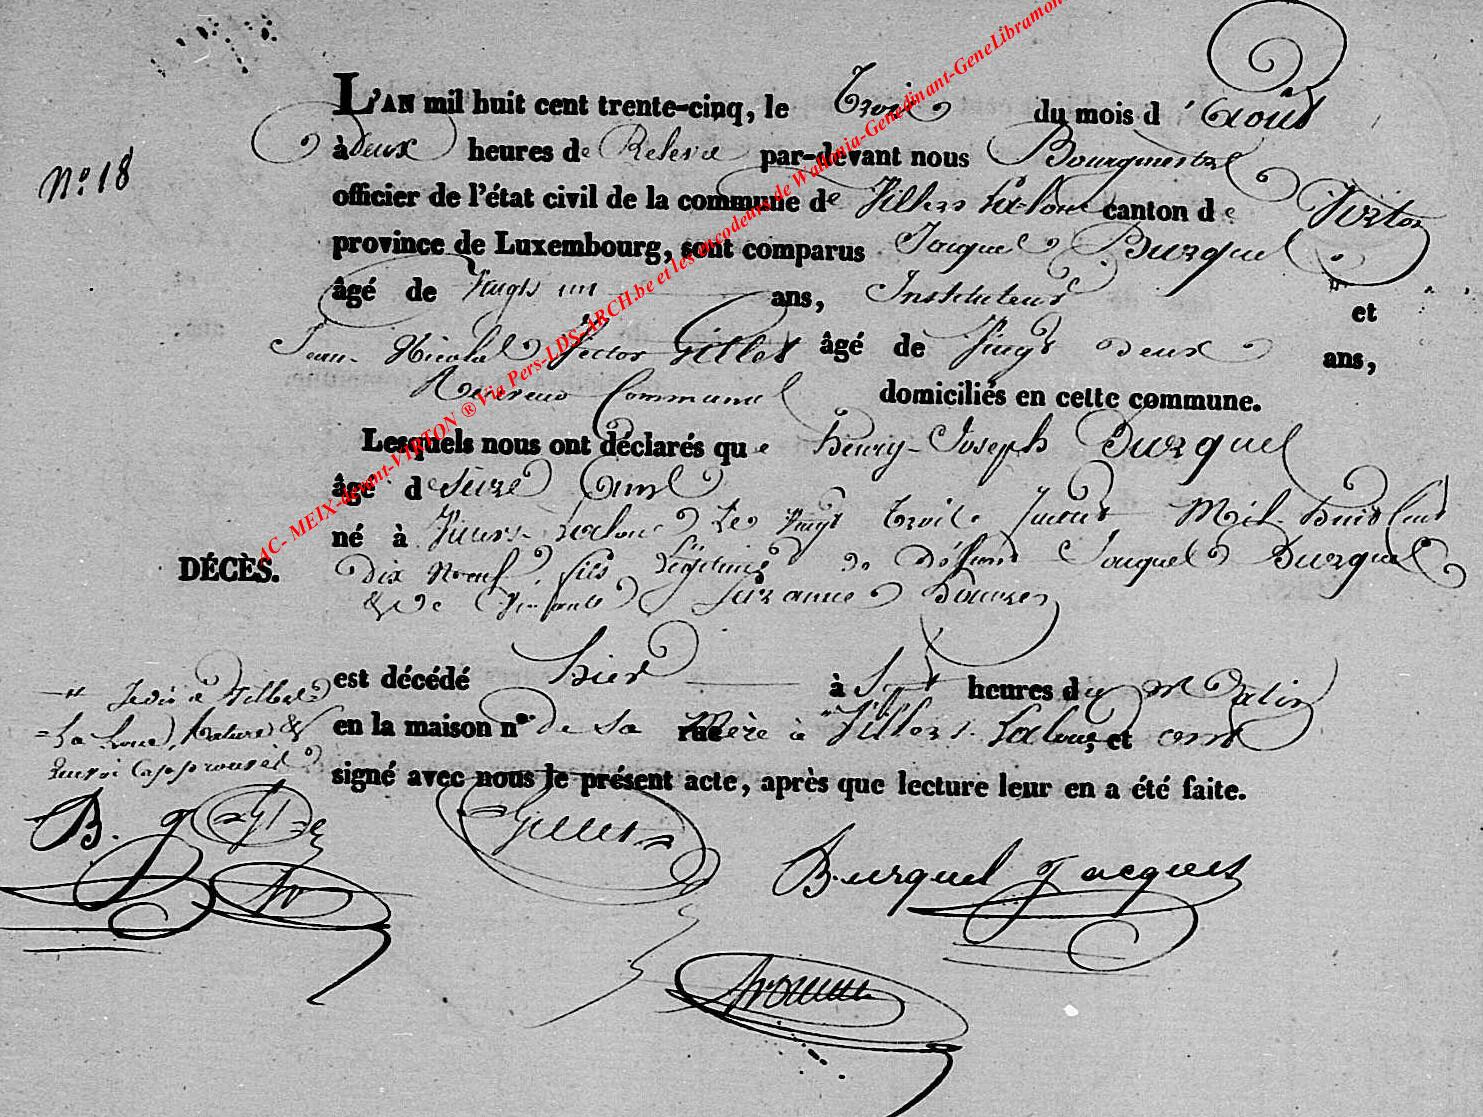 L'AN mil huit cent trente-cinq, le Trois du mois d'Aout
N.º 18
à deux heures de Relevé par-devant nous Bourgmestre
officier de l'état civil de la commune de Villers Laloue canton de Virton
province de Luxembourg, sont comparus Jaques Burquel
âgé de Vingt un ans, Instituteur " et
Jean Nicolas Victor Gillet âgé de Vingt deux ans,
Receveur Communal domiciliés en cette commune.
Lesquels nous ont déclarés que henry-Joseph Burquel
âgé de Seize ans
né à Villers-Laloue Le Vingt trois Mil huit Cent
DÉCÈS.
dix Neuf, fils Légitime de Défunt Jaques Burquel
& de Suzanne
est décédé hier à Sept heures du Matin
en la maison nº de Sa Mère à "Villers-Laloue, et ont
signé avec nous le présent acte, après que lecture leur en a été faite.
" à Villers
La Loue, Rature &
approuvés
B. J
Gillet
Burquel Jacques
AC- MEIX-devant-VIRTON ® Via Pers-LDS-ARCH.be et les encodeurs de Wallonia-Genedinant-GeneLibramon